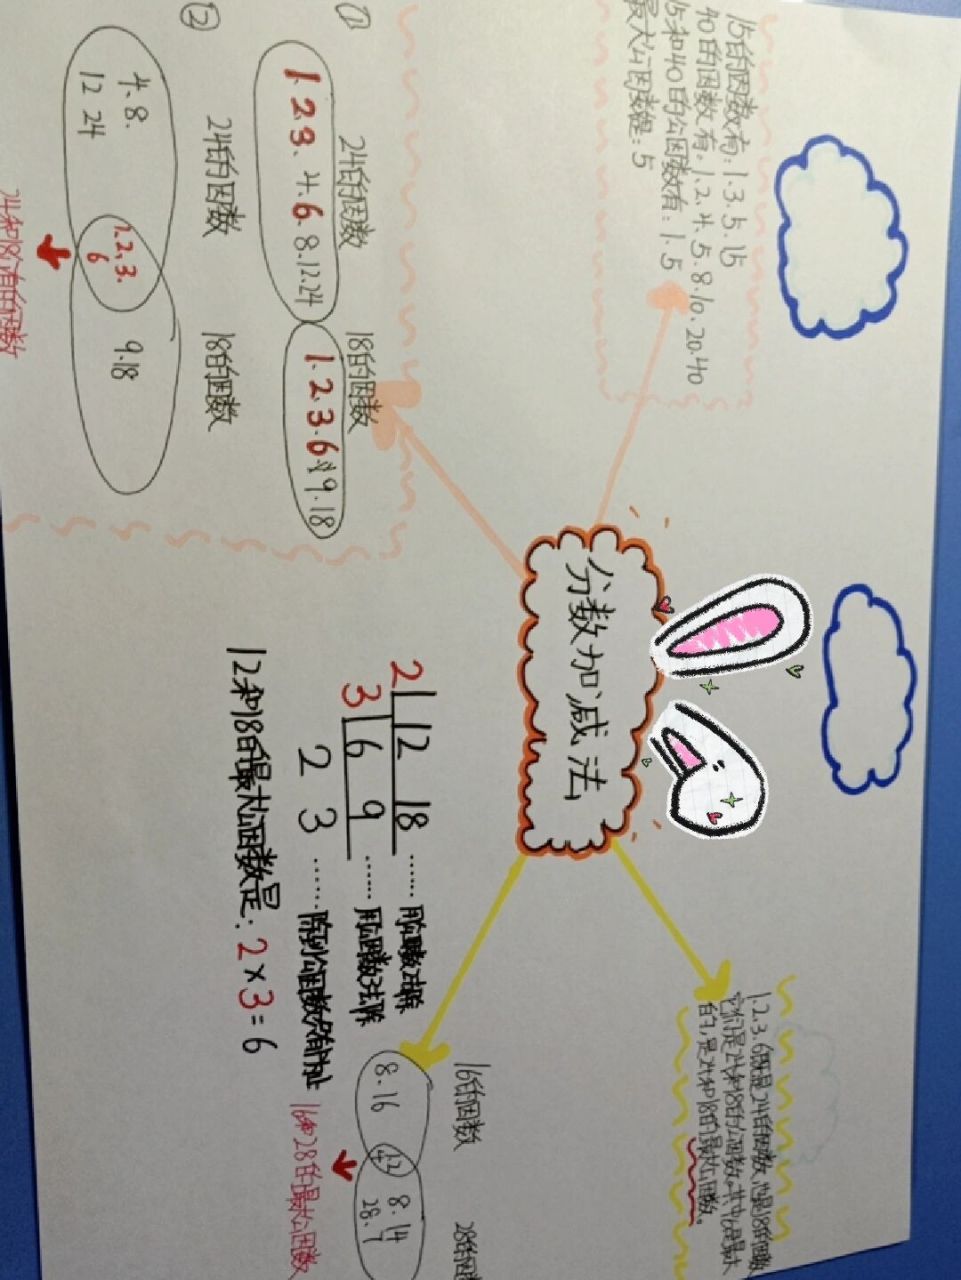 15的因数有:1.3.5.15
40的因数有.1.2.4.5.8.10.20.40
15和40的公因数有:1.5
最大公因数是:5
①
24的因数
18的因数
1.2.3.4.6.8.12.24
1.2.3.6.9.18
②
24的因数
18的因数
4.8.
12 24
1.2.3.
6
9.18
24和18
的因数
分数加减法
2 12 18 ……用公因数2去除
3 6 9 ……用公因数3去除
2 3 ……除到公因数只有1为止
12和18的最大公因数是:2×3=6
1.2.3.6既是24的因数,也是18的因数
它们是24和18的公因数。其中6是最大
的,是24和18的最大公因数。
16的因数
28的因
8.16
4
8.14
28.7
16和28的最大公因数